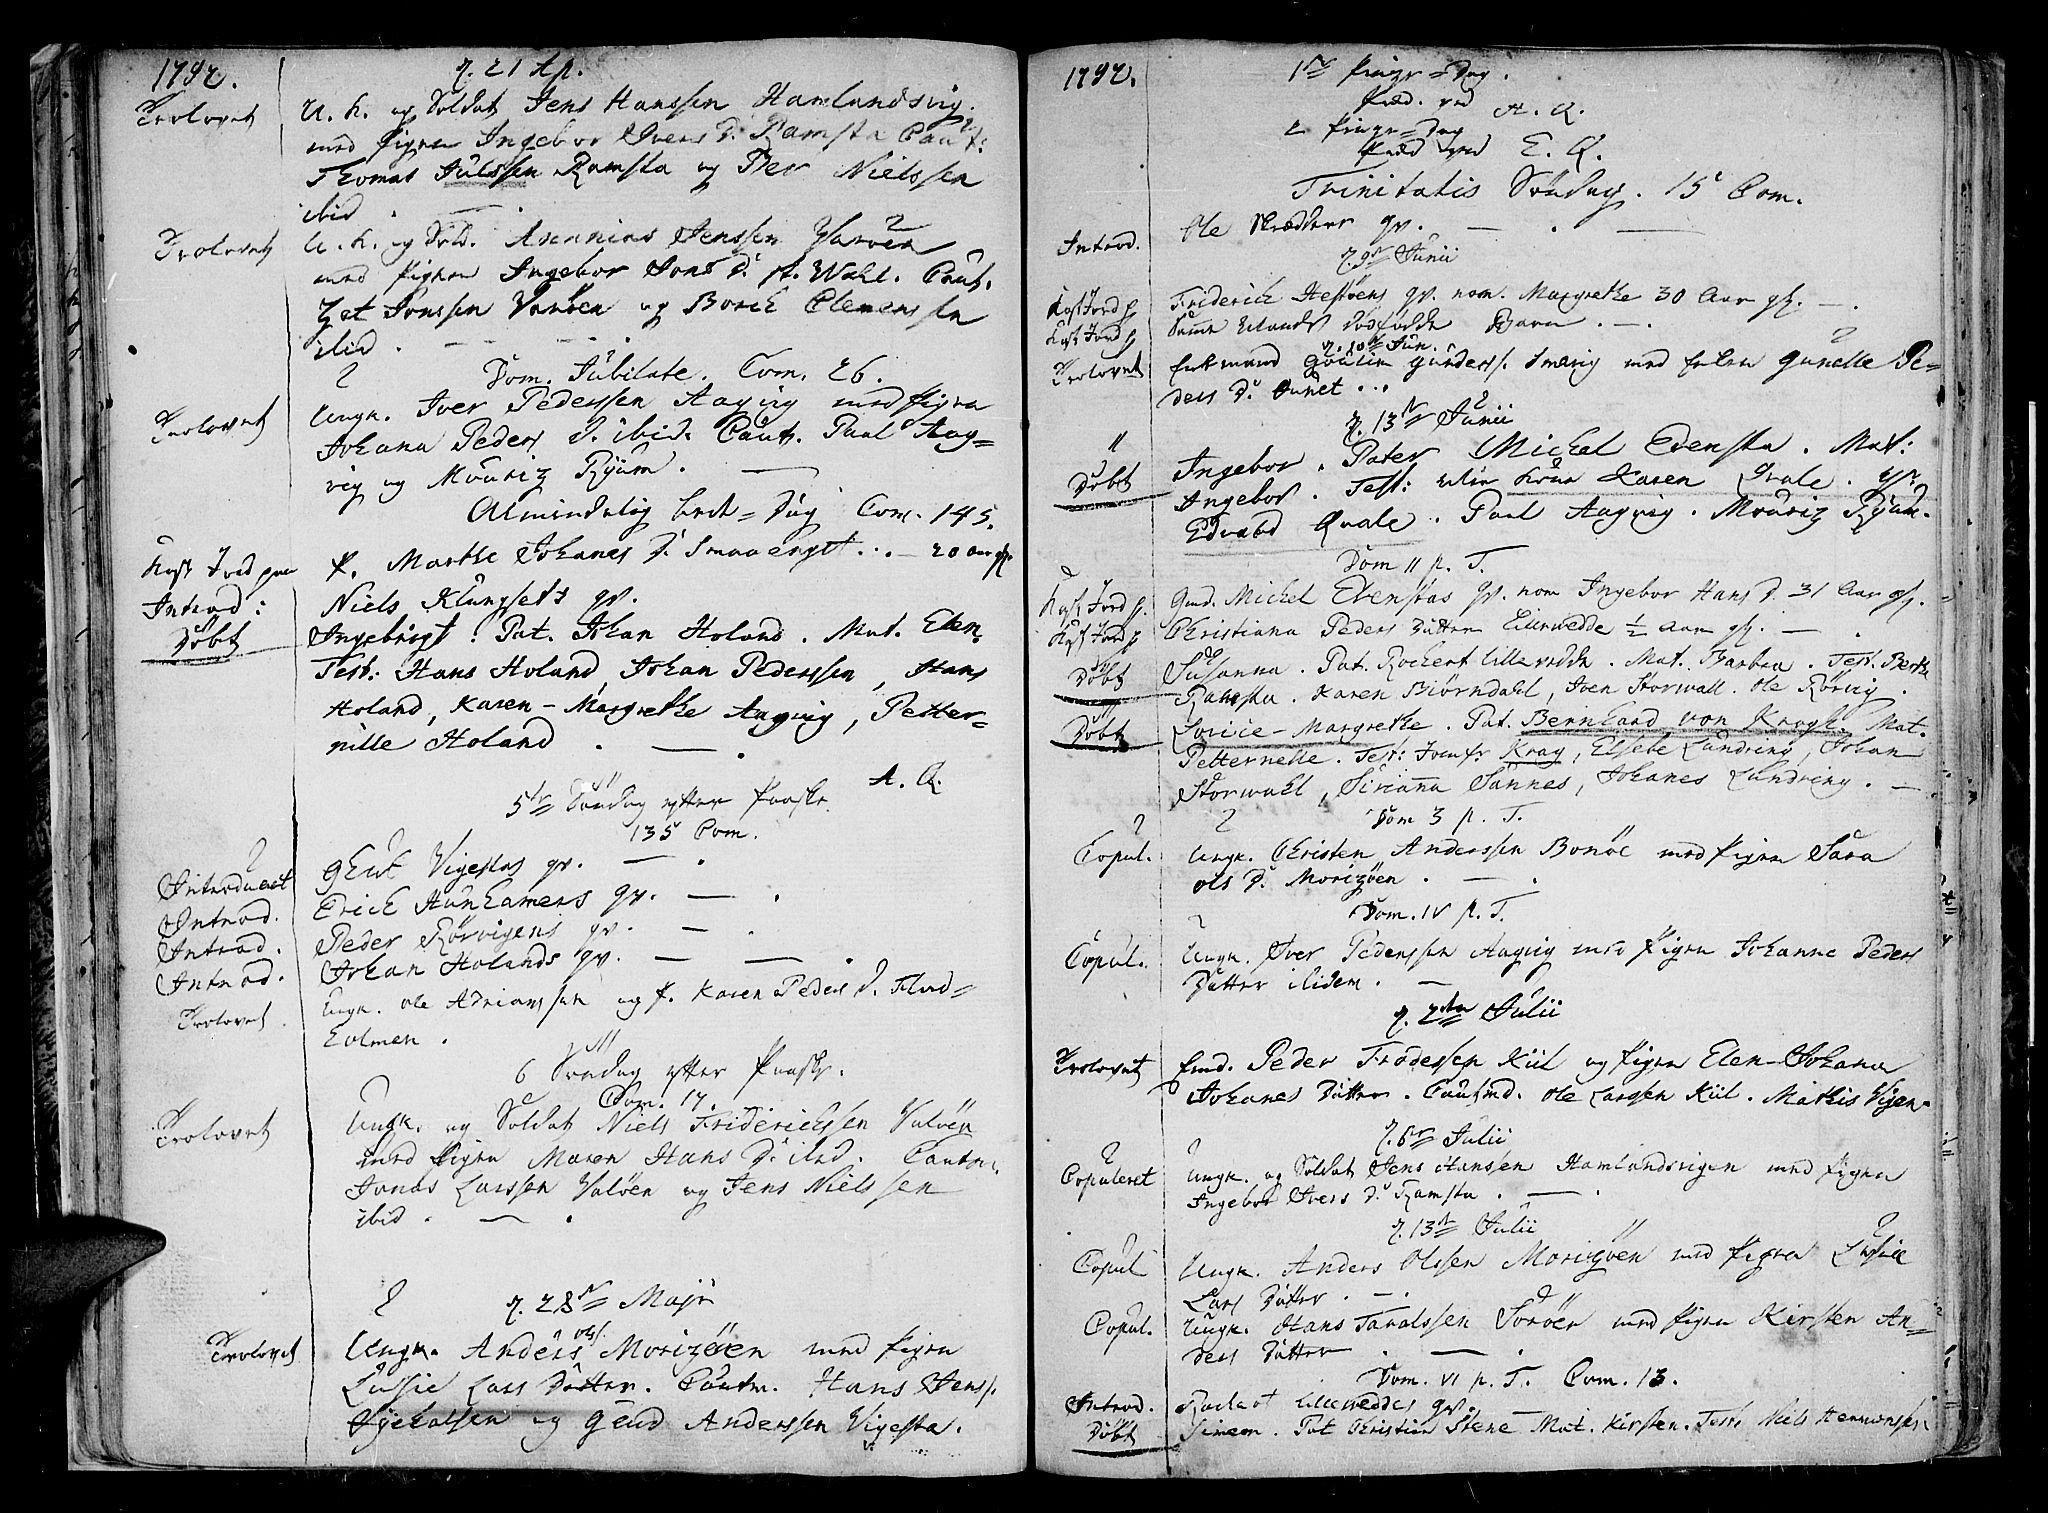 1792.
d. 21 Ap.
Trolovet
U. k. og Soldat Jens Hanssen Hamlandsvig.
med Pigen Ingebor Ivers D. Ramsta Caut:
Thomas Julssen Ramsta og Peer Nielssen
ibid.
Trolovet
U. k. og Sold. Jenssen
med Pigen Ingebor Jons D. st. Wahl. Caut.
Zet Jonssen Varøen og Borch Clemenssen
ibid.
Dom. Jubilate. Com. 26.
Trolovet
Ungk. Iver Pederssen Aagvig med Pigen
Johana Peders D. ibid. Caut. Paul Aag=
vig og Mouriz Ryum.
Almindelig Bede=Dag Com. 145.
Kast Jord paa
P. Marthe Johanes D. Smaaenget ... 20 aar gl.
Introd:
Niels Klungsets qv.
Døbt
Ingebrigt. Pat. Johan Holand. Mat. Elen.
Test: Hans Holand, Johan Pederssen, Hans
Holand, Karen-Margrethe Aagvig, Petter=
nille Holand.
5te Søndag efter Paaske A. Q.
135 Com.
Introduceret
Gent Vigestas qv.
Introd.
Erich Hunhamers qv.
Introd.
Peder Rørvigens qv.
Introd.
Johan Holands qv.
Trolovet
Ungk. Ole Adrianssen og P. Karen Peders D. Flad=
holmen.
6 Søndag efter Paaske.
Com. 17.
Trolovet
Ungk. og Soldat Niels Friderichssen Valøen
med Pigen Maren Hans D. ibid. Cautm.
Jonas Larssen Valøen og Jens Nielssen
ibid.
d. 28de Maji
Trolovet
Ungk. Anders ols. Morizøen med Pigen
Lussie Lars Datter. Cautm. Hans Jens.
og Gend Anderssen Vigesta.
1792.
1te Pinze=Dag.
Præd. ved A. Q.
2 Pinze=Dag
Præd ved E. Q.
Trinitatis Søndag. 15 Com.
Introd.
Ole Skrædders qv.
d. 9de Junii
Kast Jord p
Friderich Hestøens qv. nom. Margrethe 30 Aar gl.
Kast Jord p
dødfødde Barn.
d. 10de Jun.
Trolovet
Enkemand Goulin Gunders. Smevig med Enken Gunelle Pe=
ders D. Aunet ...
d. 13de Junii
Døbt
Ingebor. Pater Michel Evensta. Mat:
Ingebor. Test: Min Kone Karen Qvale. Hr.
Edvard Qvale. Paul Aagvig. Mouriz Ryum.
Dom II p. T.
Kast Jord p.
Gmd. Michel Evenstas qv. nom Ingebor Hans D. 31 Aar gl.
Kast Jord p
Christiana Peders Datter Lillevedde ½ Aar gl.
Døbt
Susanna. Pat. Rochert Lillevedde. Mat. Barbra. Test. Berth
Ramsta. Karen Biørndahl, Iven Storwall. Ole Rørvig.
Døbt
Lovice-Margrethe. Pat. Bernhard von Krogh. Mat.
Petternelle. Test: Jomfr. Krag, Elsebe Lundring, Johan
Storwahl, Siviana Sannes, Johanes Lundring.
Dom 3 p. T.
Copul.
Ungk. Christen Anderssen Bonøe med Pigen Sara
Ols D. Morizøen.
Dom. IV p. T.
Copul.
Ungk. Iver Pederssen Aagvig med Pigen Johanne Peders
Datter ibidem.
d. 2den Julii
Trolovet
Emd. Peder Trødessen Kiil og Pigen Elen-Johana
Johanes Datter. Cautmd. Ole Larssen Kiil. Mathis Vigen.
d. 6te Julii
Copuleret
Ungk. og Soldat Jens Hanssen Hamlandsvigen med Pigen
Ingebor Ivers D. Ramsta.
d. 13de Julii
Copul
Ungk. Anders Olssen Morizøen med Pigen Lusie
Lars Datter.
Copul.
Ungk. Hans Taralssen Sorøen med Pigen Kirsten An=
ders Datter
Dom. VI p. T. Com. 13.
Introd.
Rochert Lilleveddes qv.
Døbt
Simeon. Pat Christian Stene Mat. Kirsten. Test. Niels